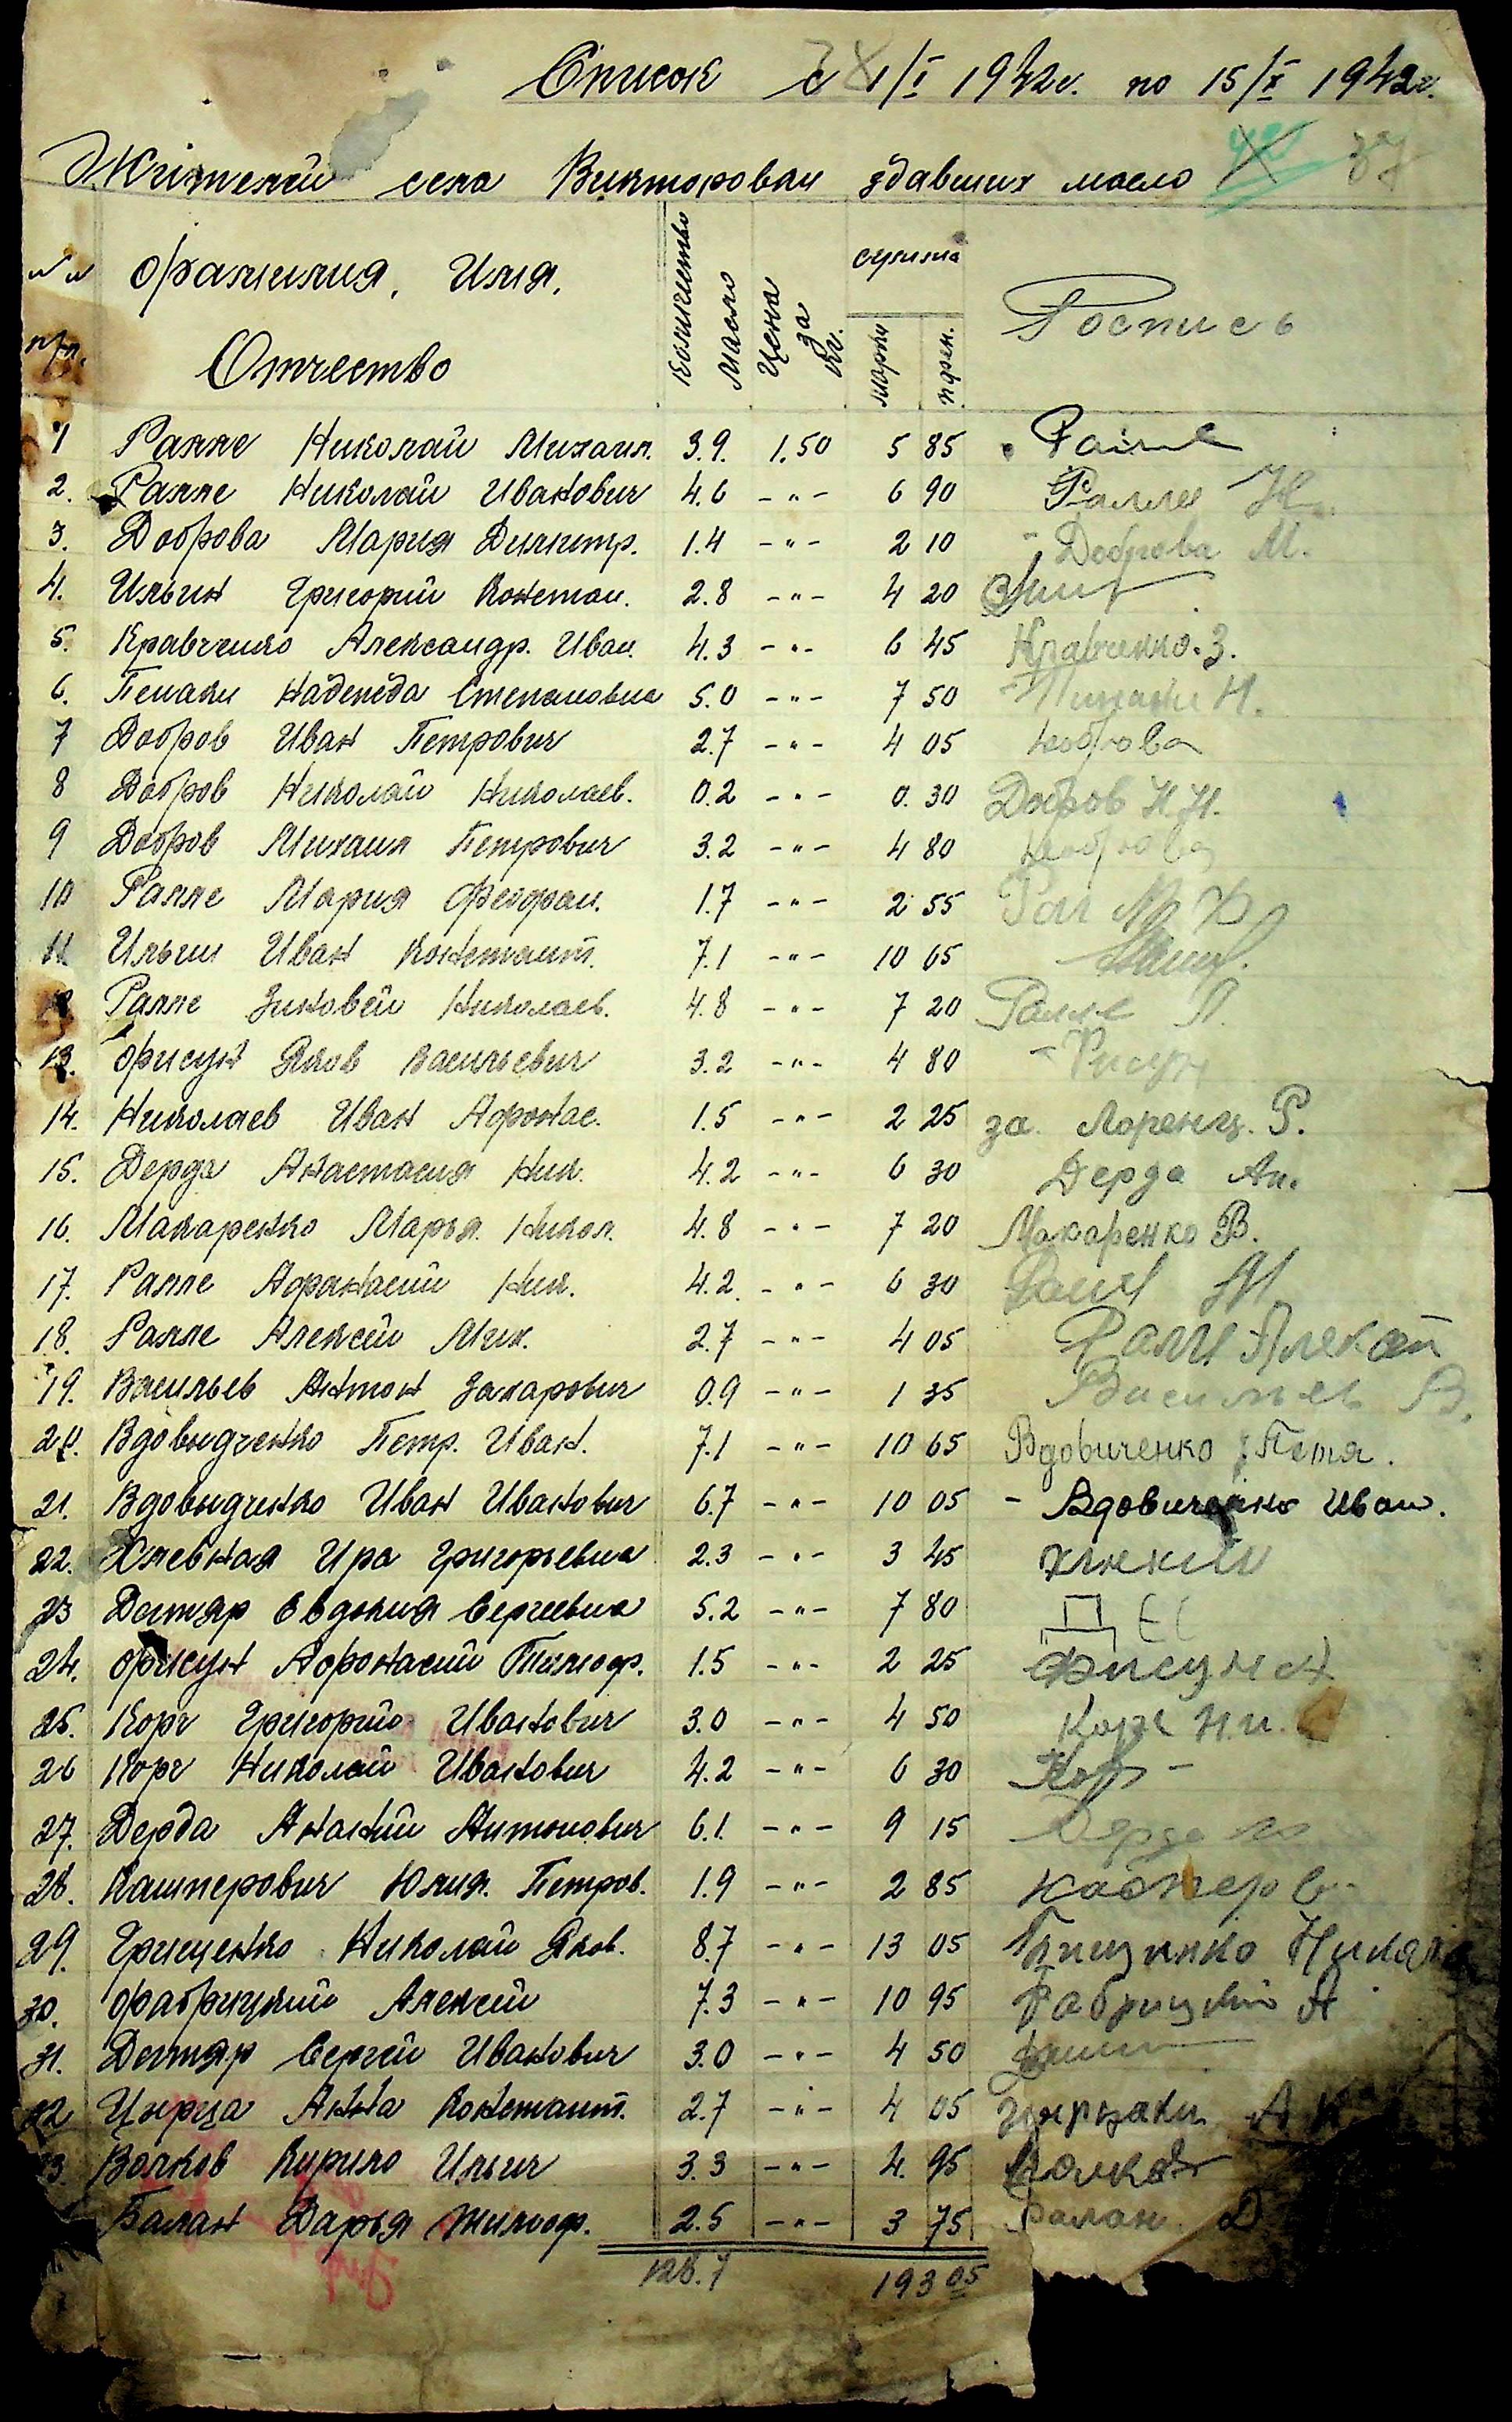 Список с 1/I 1942г. по 15/X 1942г.
Жителей села Викторовки здавших масло 37
№ № п/п. Фамилия, Имя, Отчество Количество Масло Цена за кг. сумма марки пфен. Роспись
1 Ралле Николай Михаил. 3.9. 1.50 5 85 Ралле
2. Ралле Николай Иванович 4.6 -"- 6 90 Ралле Н.
3. Доброва Мария Димитр. 1.4 -"- 2 10 Доброва М.
4. Ильин Григорий Констан. 2.8 -"- 4 20
5. Кравченко Александр. Иван. 4.3 -"- 6 45 Кравченко. З.
6. Пенаки Надежда Степановна 5.0 -"- 7 50 Н.
7 Добров Иван Петрович 2.7 -"- 4 05 Доброва
8 Добров Николай Николаев. 0.2 -"- 0. 30 Добров Н Н.
9 Добров Михаил Петрович 3.2 -"- 4 80 Доброва
10 Ралле Мария Феофан. 1.7 -"- 2 55 Рал М Ф
11. Ильин Иван Константт. 7.1 -"- 10 65
12 Ралле Зиновей Николаев. 4.8 -"- 7 20 Ралле Л.
13. Фисун Яков Васильевич 3.2 -"- 4 80 Фисун
14. Николаев Иван Афонас. 1.5 -"- 2 25 за Лоренц. Р.
15. Дерда Анастасия Ник. 4.2 -"- 6 30 Дерда Ан.
16. Макаренко Марья. Никол. 4.8 -"- 7 20 Макаренко В.
17. Ралле Афанасий Ник. 4.2. -"- 6 30
18. Ралле Алексей Мих. 2.7 -"- 4 05 Ралле Алексей
19. Васильев Антон Захарович 0.9 -"- 1 35 Васильев В.
20. Вдовидченко Петр. Иван. 7.1 -"- 10 65 Вдовиченко Петя.
21. Вдовидченко Иван Иванович 6.7 -"- 10 05 - Вдовиченко Иван.
22. Хлевная Ира Григорьевна 2.3 -"- 3 45
23 Дегтяр Евдокия Сергеевна 5.2 -"- 7 80
24. Фисун Афонасий Тимоф. 1.5 -"- 2 25 Фисун А
25. Корч Григорий Иванович 3.0 -"- 4 50 Корч Н.и.
26 Корч Николай Иванович 4.2 -"- 6 30 Кор
27. Дерда Ананий Антонович 6.1. -"- 9 15 Дерда
28. Кашперович Юлия. Петров. 1.9 -"- 2 85
29. Грищенко Николай Яков. 8.7 -"- 13 05 Грищенко Никола
30. Фабрицкий Алексей 7.3 -"- 10 95 Фабрицкий А
31. Дегтяр Сергей Иванович 3.0 -"- 4 50
32 Цурца Анна Константт. 2.7 -"- 4 05 А К
33 Волков Кирило Ильич 3.3 -"- 4. 95 Волков
Балан Дарья Тимоф. 2.5 -"- 3 75 Балан. Д
128.7 193 05